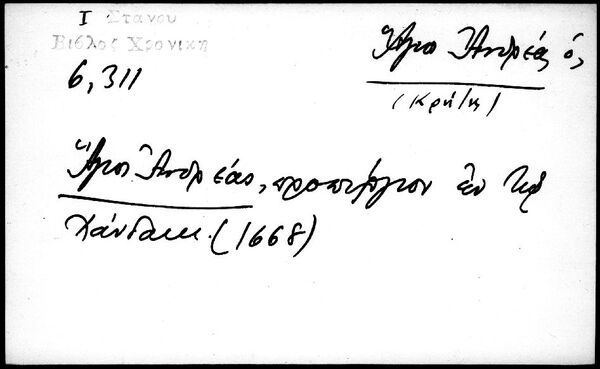 I Στανου
Βιβλος Χρονικη
6,311
Ἅγιος Ἀνδρέας ὁ,
(Κρήτης)
Ἅγιος Ἀνδρέας, προπύργιον ἐν τῷ
Χάνδακι. (1668)